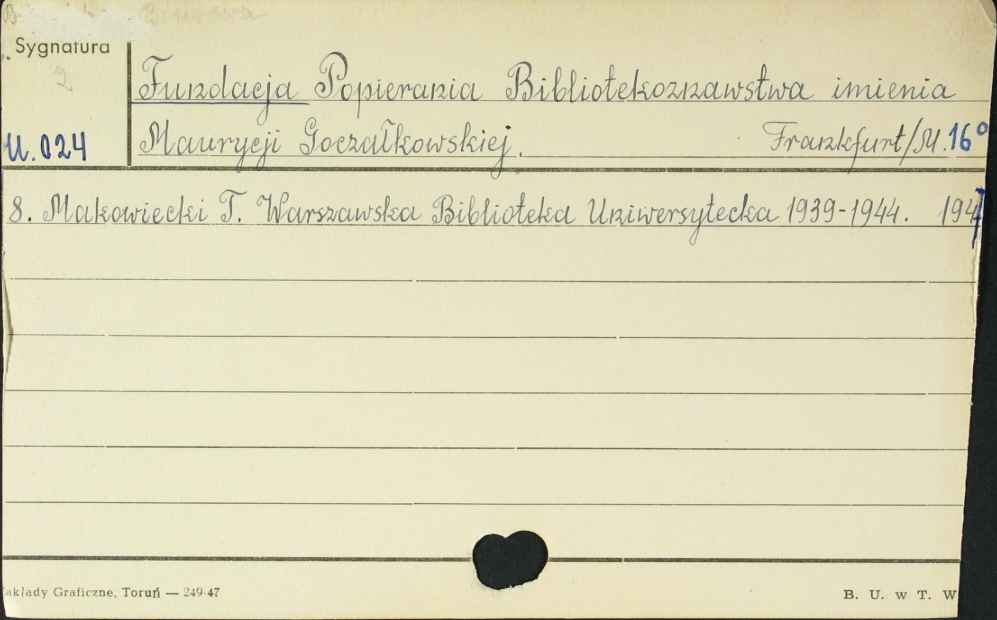 Sygnatura
2
Fundacja Popierania Bibliotekoznawstwa imienia
U.024
Maurycji Goczałkowskiej. Frankfurt/M. 16°
8. Makowiecki T. Warszawska Biblioteka Uniwersytecka 1939-1944. 1947
Zakłady Graficzne, Toruń — 249-47
B. U. w T. W